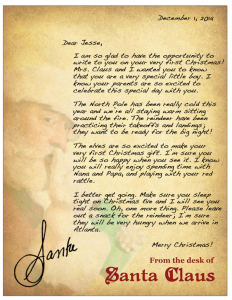 December 1, 2011
Dear Jesse,
I am so glad to have the opportunity to
write to you on your very first Christmas!
Mrs. Claus and I wanted you to know
that you are a very special little boy. I
know your parents are so excited to
celebrate this special day with you.
The North Pole has been really cold this
year and we're all staying warm sitting
around the fire. The reindeer have been
practicing their takeoffs and landings;
they want to be ready for the big night!
The elves are so excited to make your
very first Christmas gift. I'm sure you
will be so happy when you see it. I know
you will really enjoy spending time with
Nana and Papa, and playing with your red
rattle.
I better get going. Make sure you sleep
tight on Christmas Eve and I will see you
real soon. Oh, one more thing. Please leave
out a snack for the reindeer; I'm sure
they will be very hungry when we arrive in
Atlanta.
Merry Christmas!
Santa
From the desk of
Santa Claus